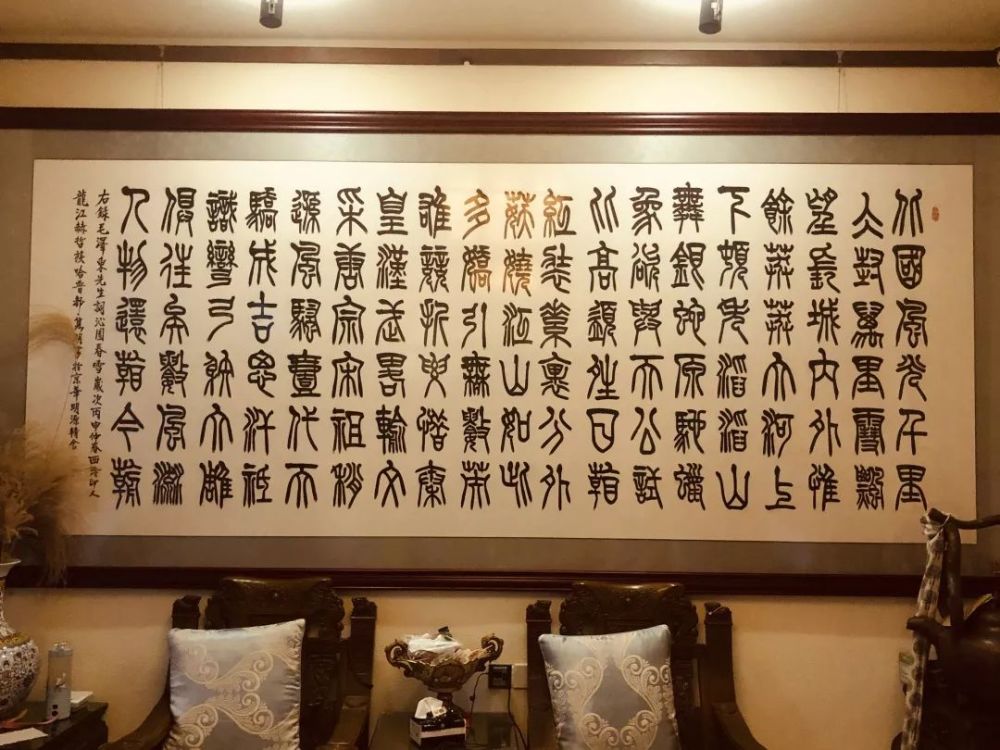 北國風光千里
冰封萬里雪飄
望長城內外惟
餘莽莽大河上
下頓失滔滔山
舞銀蛇原馳蠟
象欲與天公試
比高須晴日看
紅裝素裹分外
妖嬈江山如此
多嬌引無數英
雄競折腰惜秦
皇漢武略輸文
采唐宗宋祖稍
遜風騷壹代天
驕成吉思汗祗
識彎弓射大雕
俱往矣數風流
人物還看今朝
右錄毛澤東先生詞沁園春雪歲次丙申仲春西泠印人
龍江赫哲族哈普都雋明書於京華明源精舍